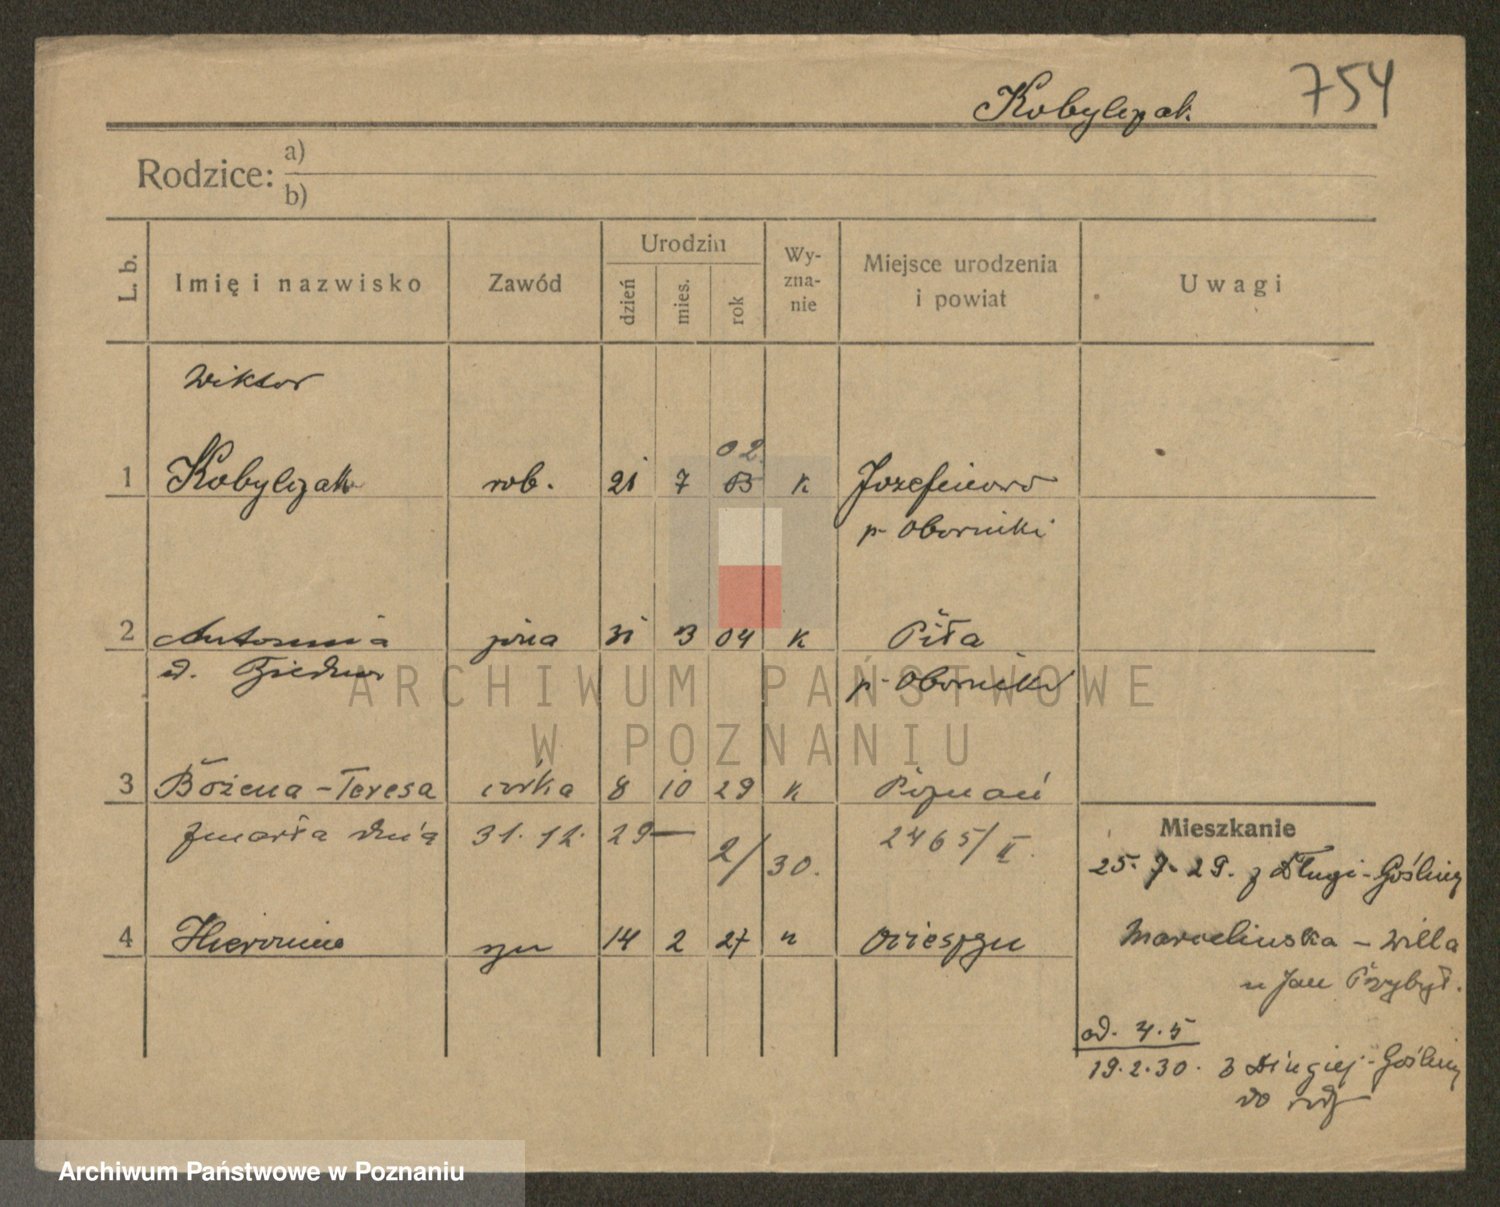 Kobylczak 754
Rodzice: a)
b)
L. b. Imię i nazwisko Zawód Urodzin dzień mies. rok Wyznanie Miejsce urodzenia i powiat Uwagi
Wiktor
02
1 Kobylczak rob. 21 7 03 k Józefinowo
p. Oborniki
2 Antonina żona 31 3 04 k Piła
d. p. Oborniki
3 Bożena-Teresa córka 8 10 29 k Poznań
zmarła dnia 31. 12. 29 — 2/30. 2465/II.
Mieszkanie
25. 7. 29. z Długi-Gośliny
4 Hieronim syn 14 2 27 Ocieszyn
Marcelińska - Willa
u Jan Przybył.
od. 4.5
19.2.30. z Długiej-Gośliny
do
ARCHIWUM PAŃSTWOWE
W POZNANIU
Archiwum Państwowe w Poznaniu